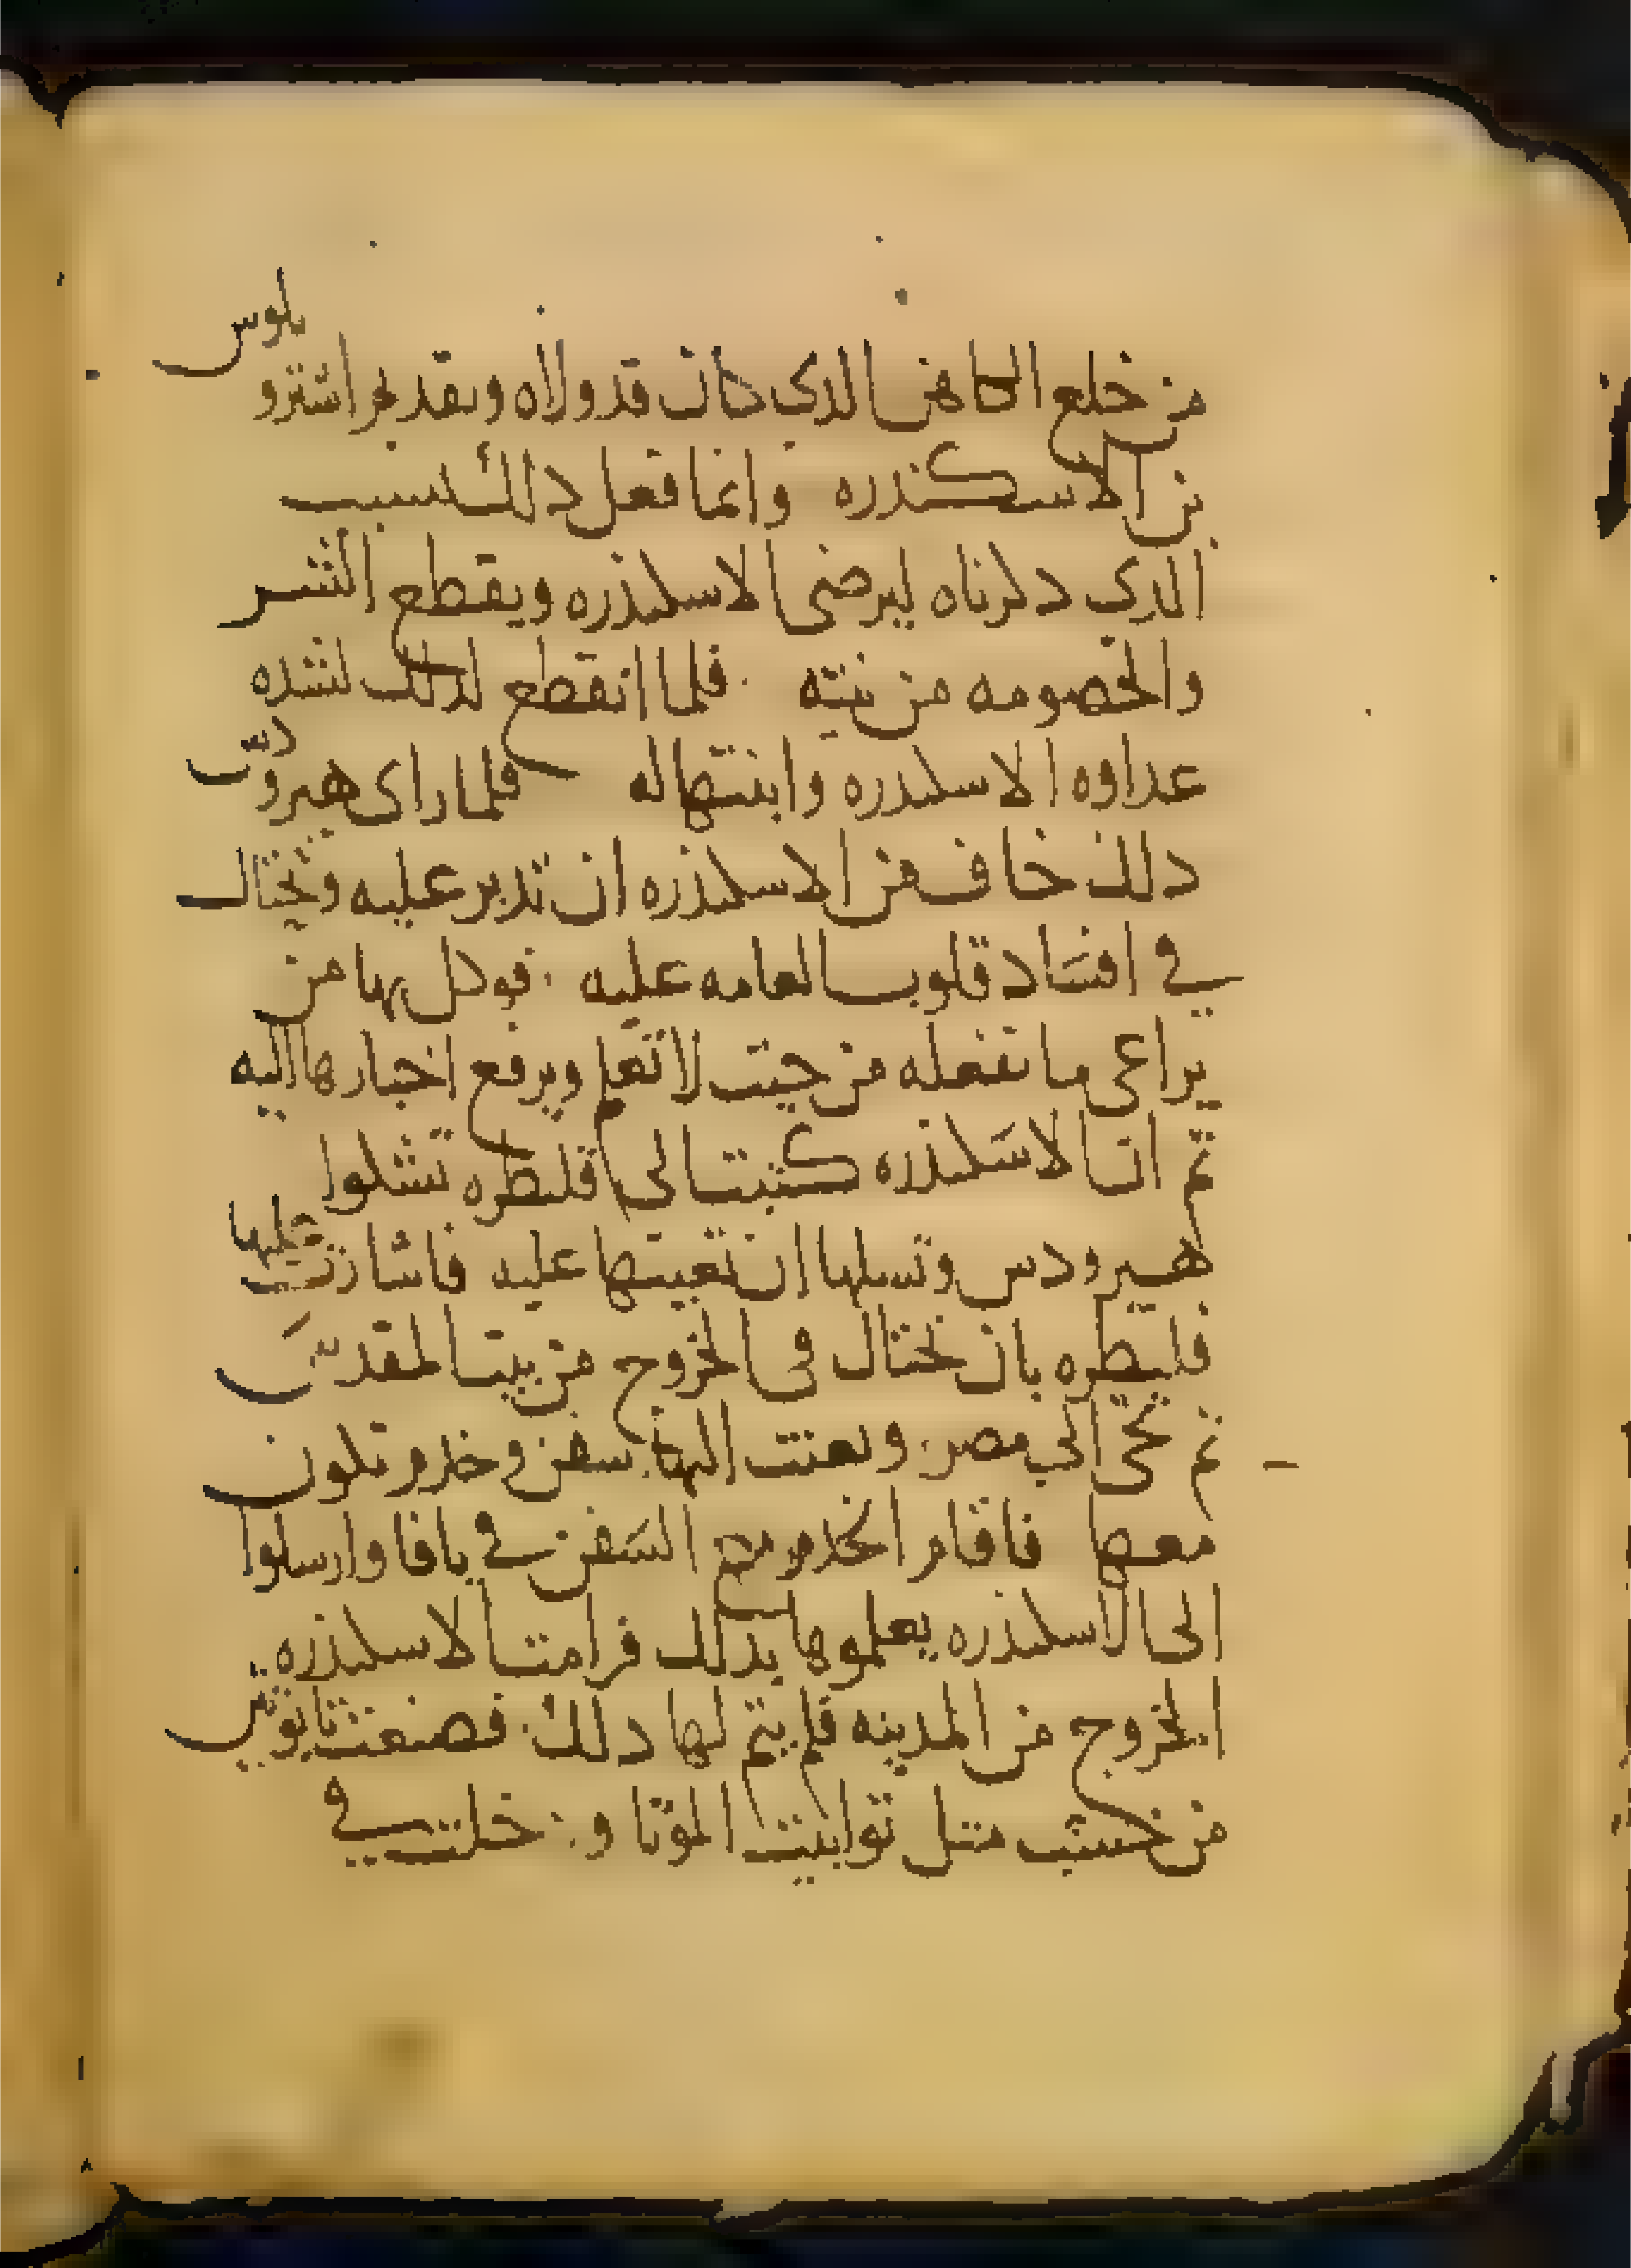 من خلع الكاهن الدى كان قد ولاه وىقديم ارسترو بلوس
بن الاسكندره وانما فعل دلك لسبب
الدى دكرناه ليرضى الاسكندره ويقطع الشر
والخصومه من بيته فلما انقطع لدلك لشده
عداوه الاسكندره وابنتها له فلما راى هيرودس
دلك خاف من الاسكندره ان تدبر عليه وتحتال
في افساد قلوب العامه عليه فوكل بها من
يراعى ما تفعله من حيث لا تعلم ويرفع اخبارها اليه
تم ان الاسكندره كتبت الى قلبطره تشكوا
هيرودس وتسلها ان تعينها عليه فاشارت عليها
قلبطره بان تحتال فى الخروج من بيت المقدس
تم تجى الي مصر وبعتت اليها سفن وخدم تكون
معها فاقام الخدام مع السفن في يافا وارسلوا
الى الاسكندره يعلموها بدلك فرامت الاسكندره
الخروج من المدينه فلم يتم لها دلك فصنعت تابوتين
من خشب متل توابيت الموتا ودخلت في